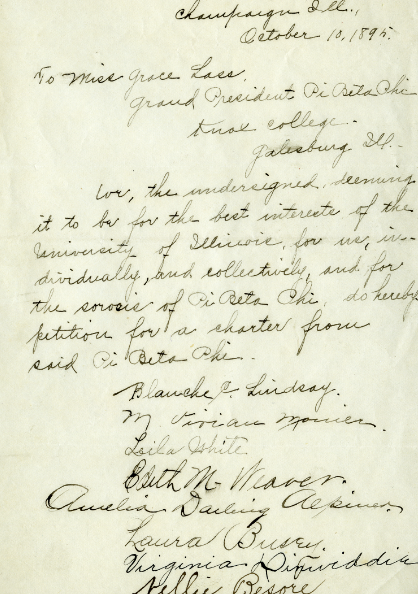 Champaign Ill.,
October 10, 1895.
To Miss Grace Lass.
Grand President Pi Beta Phi
Knox College.
Galesburg Ill.
We, the undersigned, deeming
it to be for the best interests of the
University of Illinois, for us, in-
dividually, and collectively, and for
the sorosis of Pi Beta Phi, do hereby
petition for a charter from
said Pi Beta Phi.
Blanche C. Lindsay.
M. Vivian Monier.
Leila White
Edith M. Weaver.
Amelia Darling Alpiner
Laura Busey.
Virginia Dinwiddie
Nellie Besore